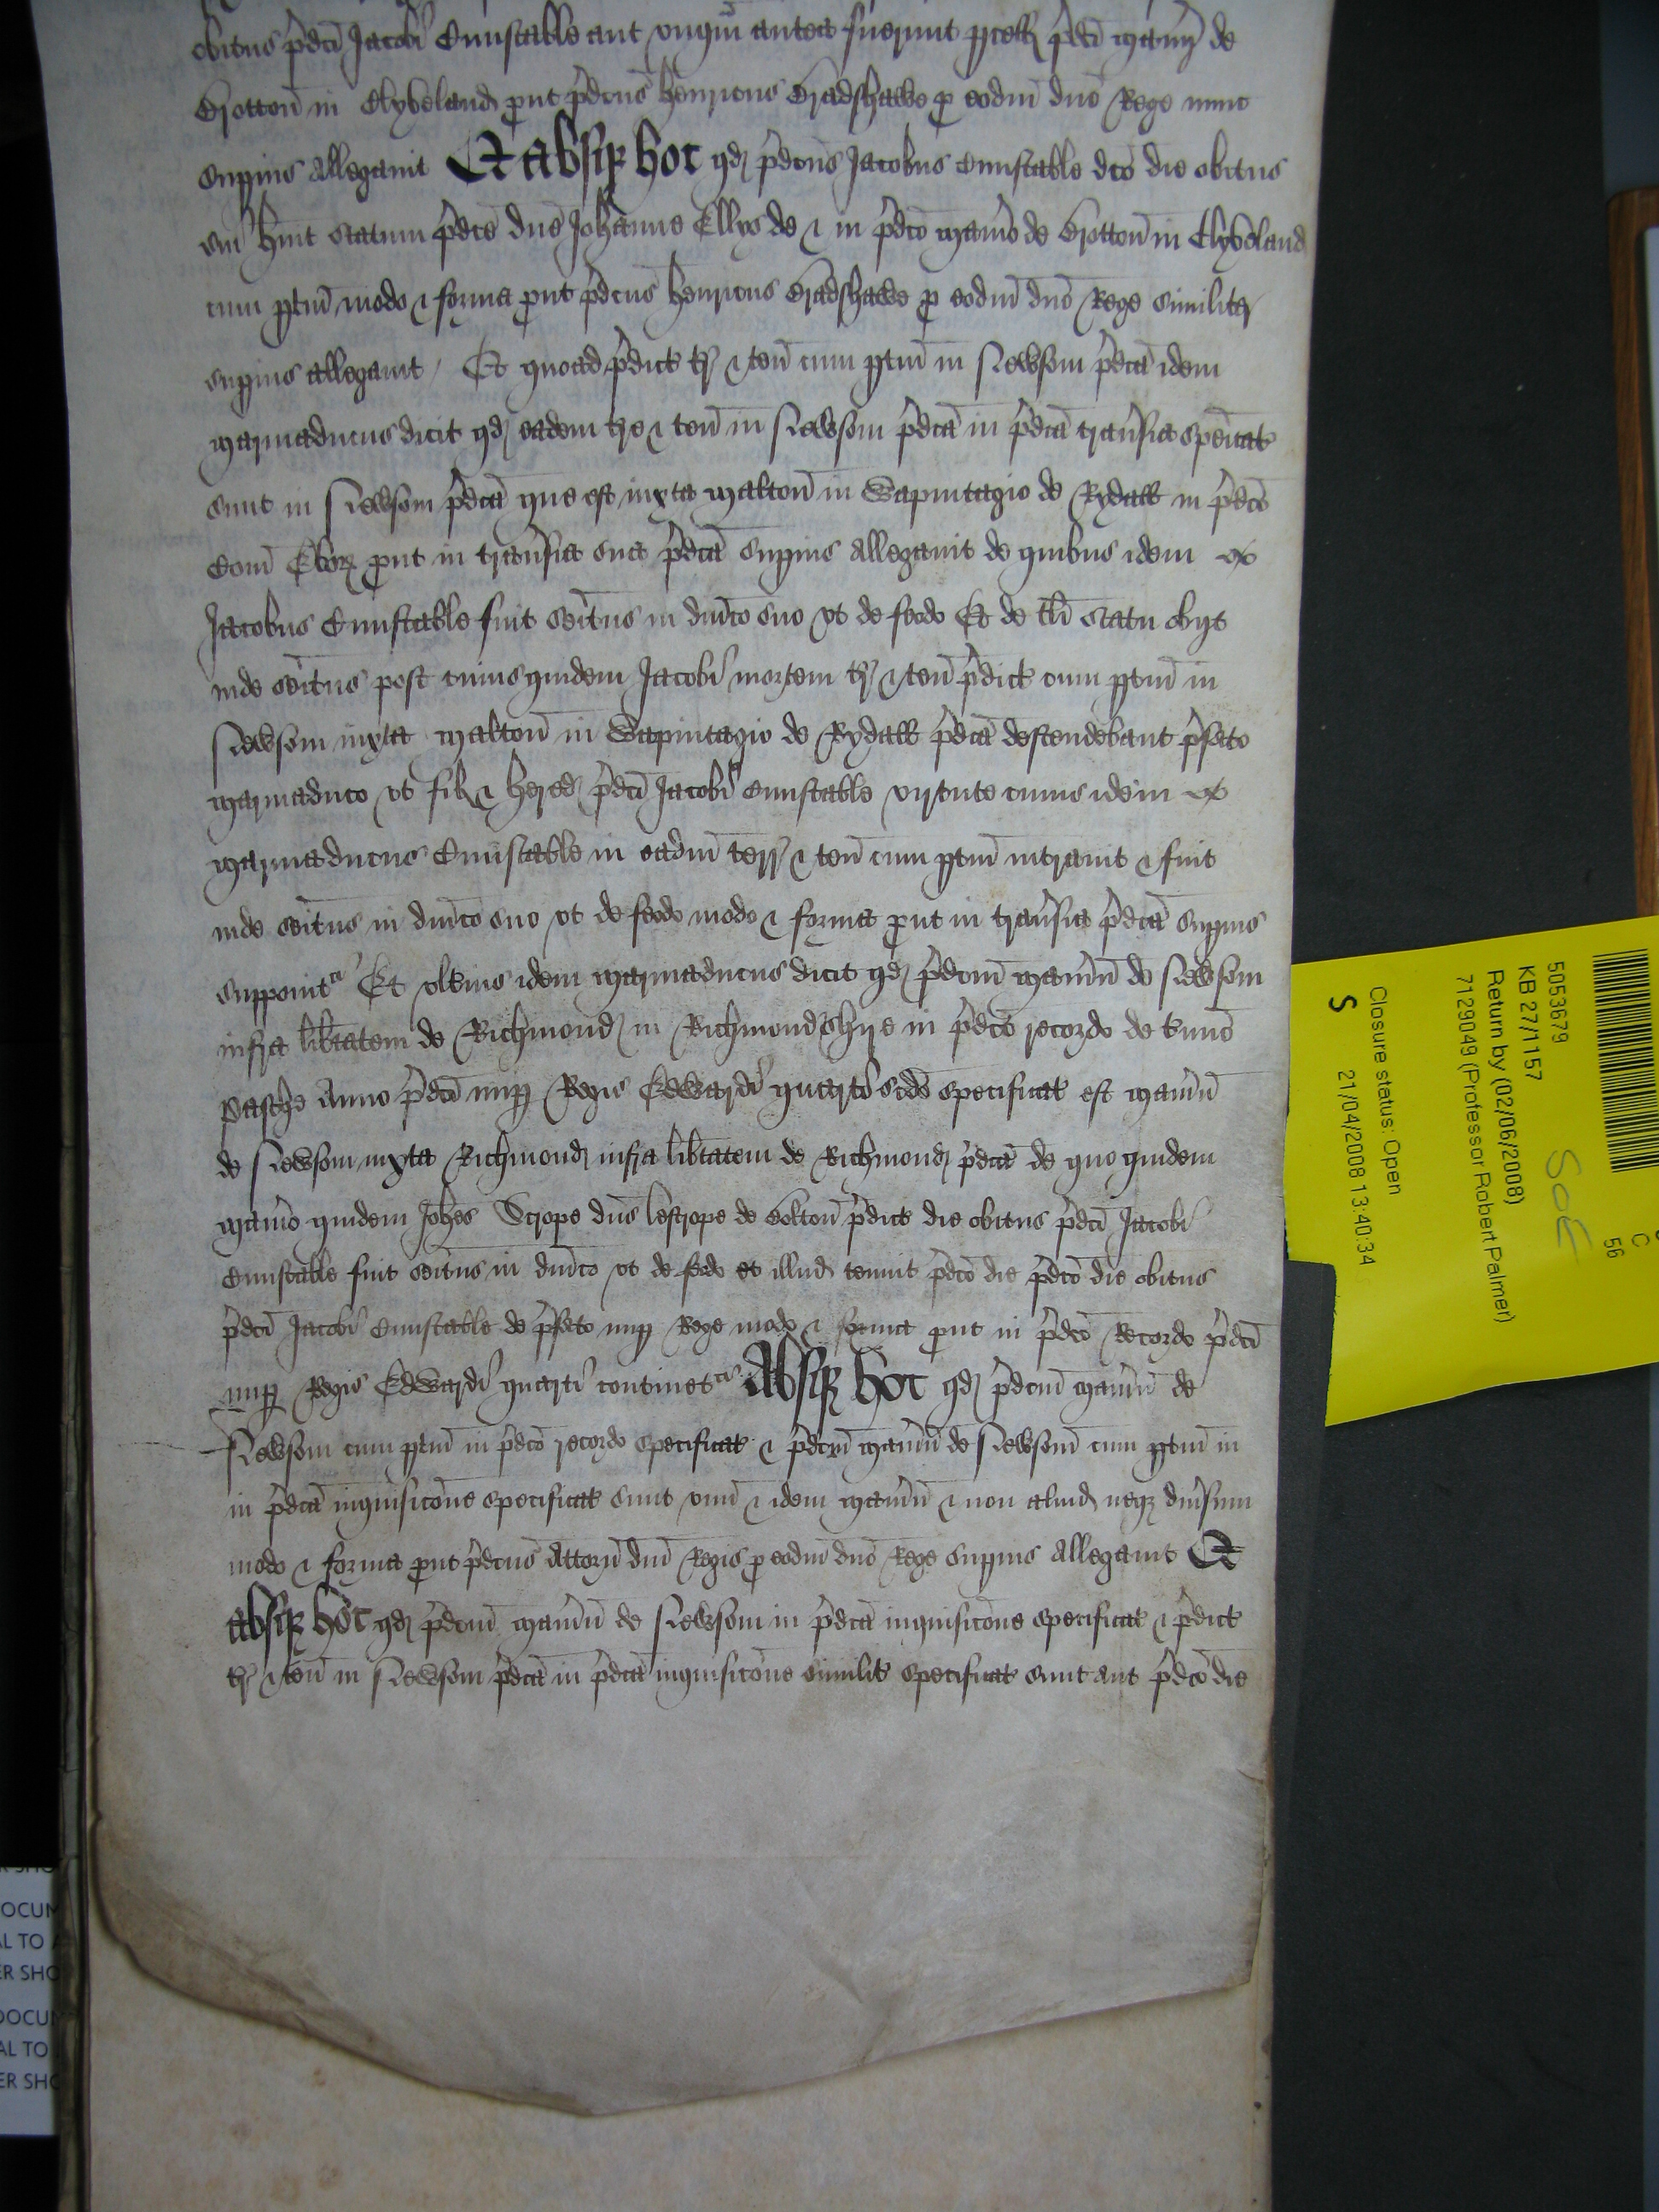 obitus p̄dcī Jacobi Cunstable aut unqm̄ antea fuerunt p̲cell p̄dcī maner̄ de
Brotton̄ in Clyveland put p̄dcus Henricus Bradshawe p eodm̄ dn̄o Rege nunc
superius allegavit Et absq̲ hoc qd p̄dcus Jacobus Cunstable dc̄o die obitus
sui huit statum p̄dc̄e dn̄e Joh̄anne Ellys de & in p̄dc̄o man̄io de Brotton̄ in Clyveland
cum ptin̄ modo & forma put p̄dcus Henricus Bradshawe p eodm̄ dn̄o Rege similiter
superius allegavit / Et quoad p̄dict tr̄ & ten̄ cum ptin̄ in Newsom p̄dcā idem
Marmaducus dicit qd eadem tre & ten̄ in Newsom p̄dcā in p̄dcā trav̄sia spēcat
sunt in Newsom p̄dcā que est iuxta Malton̄ in Wapintagio de Rydall in p̄dc̄o
Com̄ Ebor̄ put in trav̄sia sua p̄dcā superius allegavit de quibus idem
Jacobus Cunstable fuit seītus in dn̄ico suo ut de feodo Et de tli statu obijt
inde seītus post cuius quidem Jacobi mortem tr̄ & ten̄ p̄dict cum ptin̄ in
Newsom iuxta Malton̄ in Wapintagio de Rydall p̄dcā descendebant p̄fato
Marmaduco ut fil & hered p̄dcī Jacobi Cunstable virtute cuius idem
Marmaducus Cunstable in eadm̄ terr̄ & ten̄ cum ptin̄ intravit & fuit
inde seītus in dn̄ico suo ut de feodo modo & forma put in trav̄sia p̄dcā superius
supponit^r Et ulterius idem Marmaducus dicit qd p̄dcum man̄iu de Newsom
infra lib̄tatem de Richmond in Richmondshire in p̄dc̄o recordo de t̄mio
Pasche Anno p̄dcī nup̲ Regis Edwardi quarti scdo specificat est man̄iu
de Newsom iuxta Richmond infra lib̄tatem de Richmond p̄dcā de quo quidem
man̄io quidem Johes Scrope dn̄s lescrope de Bolton̄ p̄dict die obitus p̄dcī Jacobi
Cunstable fuit seītus in dn̄ico ut de feodo et illud tenuit p̄dc̄o die p̄dc̄o die obitus
p̄dcī Jacobi Cunstable de p̄fato nup̲ Rege modo & forma put in p̄dc̄o Recordo p̄dcī
nup̲ Regis Edwardi quarti continet^r Absq̲ hoc qd p̄dcum man̄iu de
Newsom cum ptin̄ in p̄dc̄o recordo specificat & p̄dcm̄ man̄iu de Newsom cum ptin̄ in
in p̄dcā inquisic̄one specificat sunt unu̅ & idem man̄iu & non aliud neq̲ div̄sum
modo & forma put p̄dcus Attorn̄ dn̄i Regis p eodm̄ dn̄o Rege superius allegavit Et
absq̲ hoc qd p̄dcum man̄iu de Newsom in p̄dcā inquisic̄one specificat & p̄dict
tr̄ & ten̄ in Newsom p̄dcā in p̄dcā inquisic̄one similit specificat sunt aut p̄dc̄o die
5053679
KB 27/1157
Return by (02/06/2008)
7129049 (Professor Robert Palmer)
Closure status: Open
21/04/2008 13:40:34
S
C
56
SoE